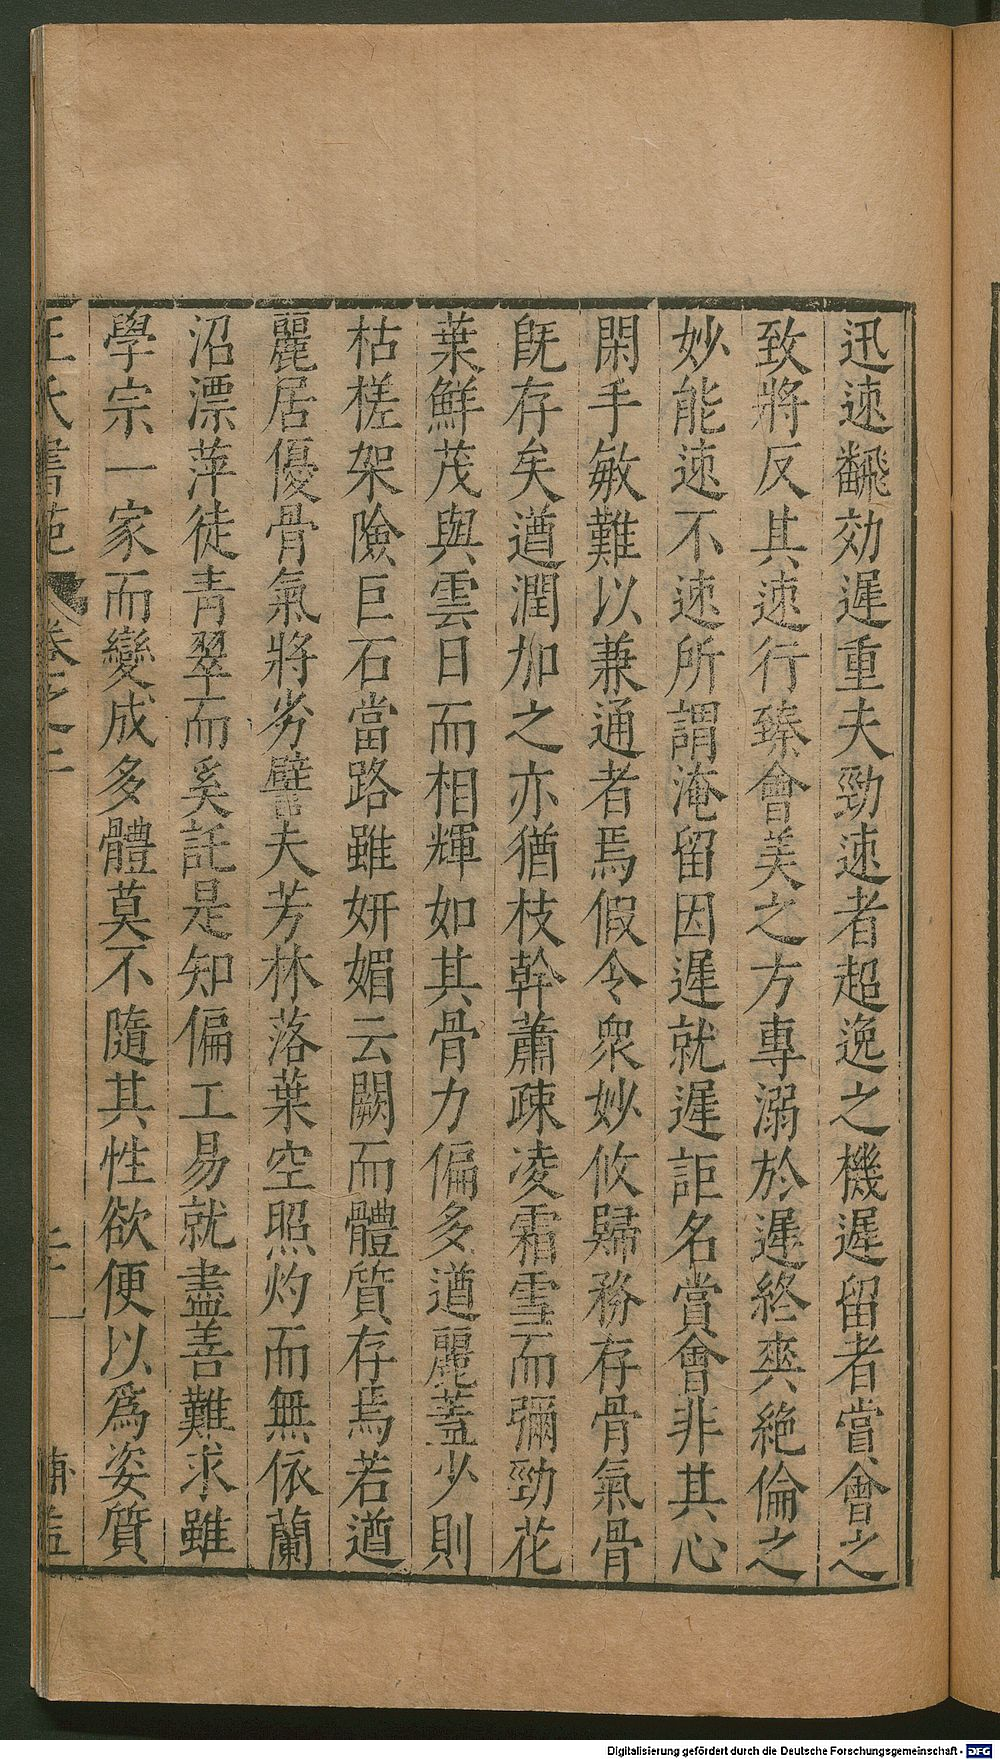 迅速飜効遲重夫勁速者超逸之機遲留者賞會之
致將反其速行臻會美之方專溺於遲終爽絶倫之
妙能速不速所謂淹留因遲就遲詎名賞會非其心
閑手敏難以兼通者焉假令衆妙攸歸務存骨氣骨
旣存矣遒潤加之亦猶枝幹蕭疎凌霜雪而彌勁花
葉鮮茂與雲日而相輝如其骨力偏多遒麗蓋少則
枯槎架險巨石當路雖妍媚云闕而體質存焉若遒
麗居優骨氣將劣譬夫芳林落葉空照灼而無依蘭
沼漂萍徒青翠而奚託是知偏工易就盡善難求雖
學宗一家而變成多體莫不隨其性欲便以爲姿質
王氏書苑 卷之二
Digitalisierung gefördert durch die Deutsche Forschungsgemeinschaft - DFG